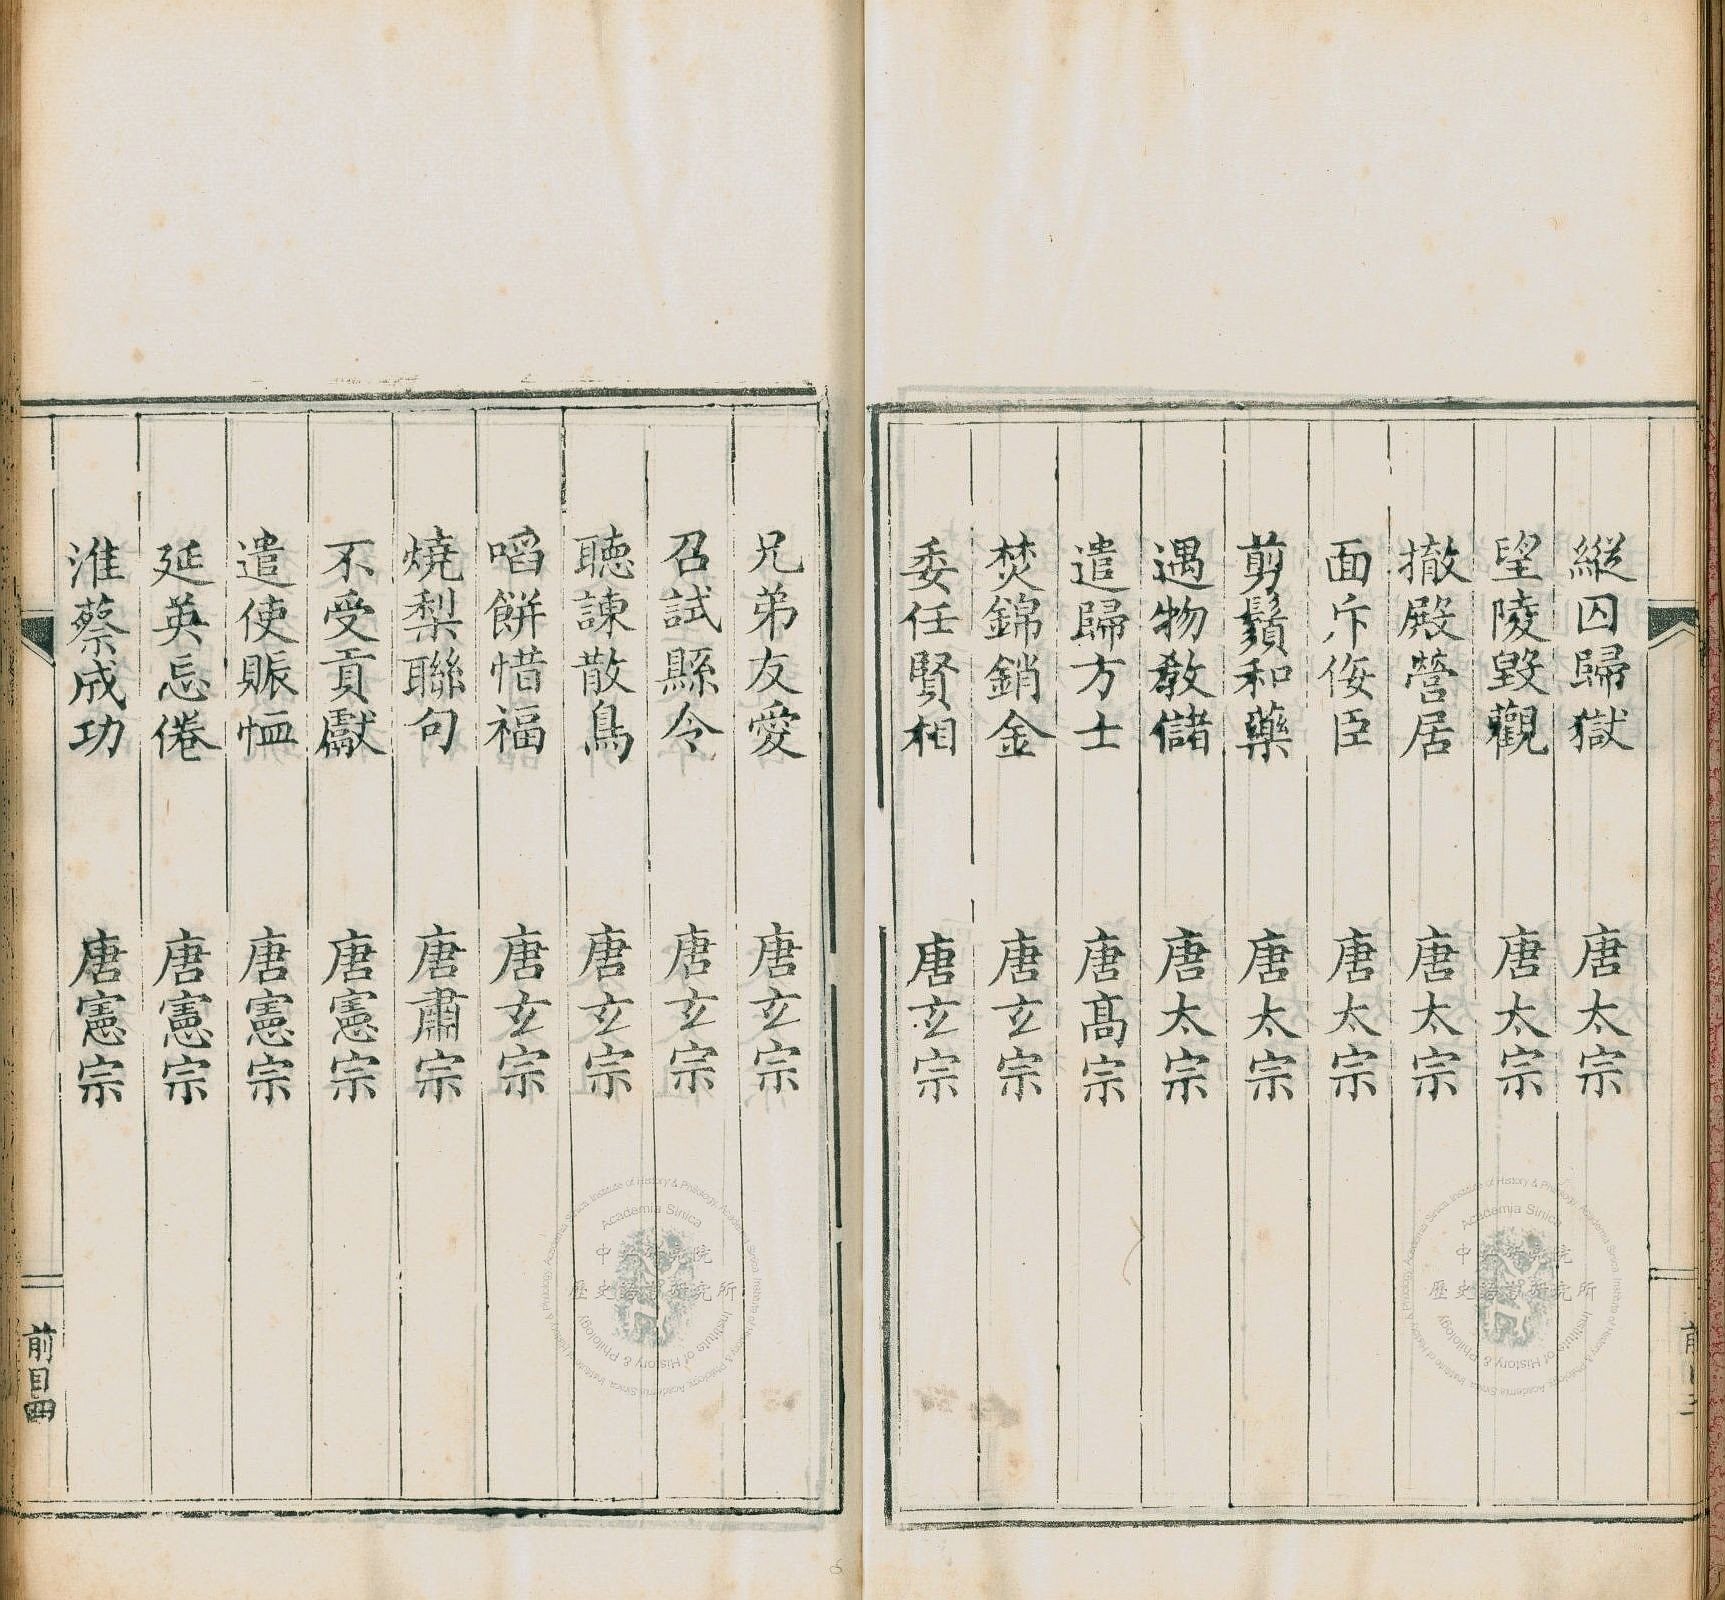 縱囚歸獄 唐太宗
望陵毀觀 唐太宗
撤殿營居 唐太宗
面斥佞臣 唐太宗
剪鬚和藥 唐太宗
遇物教儲 唐太宗
遣歸方士 唐高宗
焚錦銷金 唐玄宗
委任賢相 唐玄宗
兄弟友愛 唐玄宗
召試縣令 唐玄宗
聽諫散鳥 唐玄宗
啗餅惜福 唐玄宗
燒梨聯句 唐肅宗
不受貢獻 唐憲宗
遣使賑恤 唐憲宗
延英忘倦 唐憲宗
淮蔡成功 唐憲宗
前目四
Academia Sinica
中央研究院
歷史語言研究所
Institute of History & Philology
Academia Sinica
中央研究院
歷史語言研究所
Institute of History & Philology